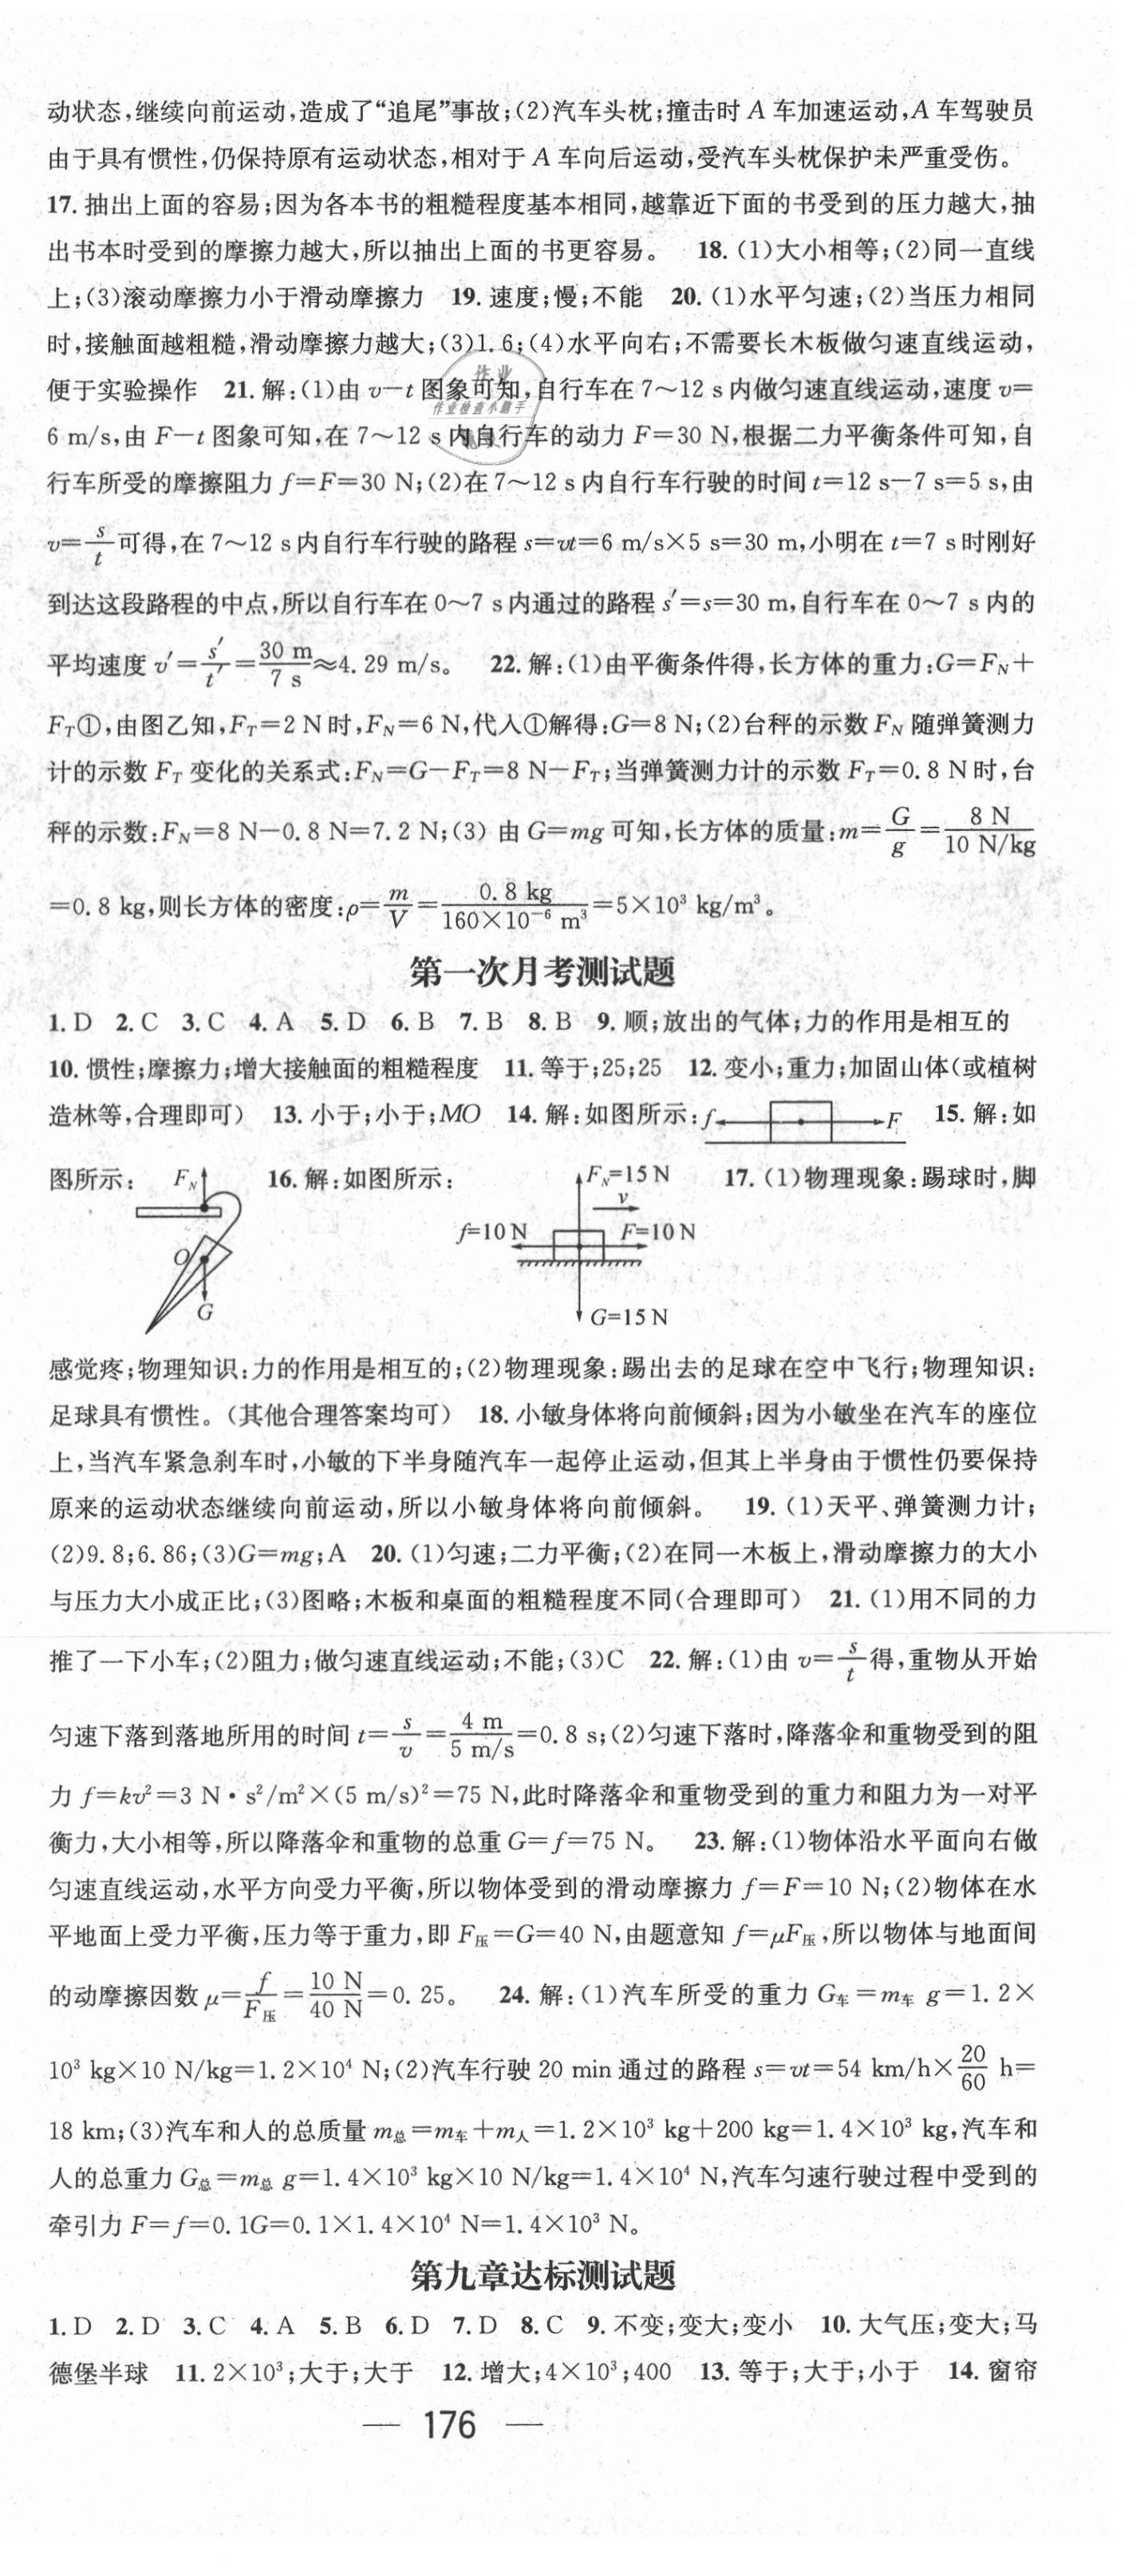 动状态,继续向前运动,造成了“追尾”事故;(2)汽车头枕;撞击时 A 车加速运动,A 车驾驶员
由于具有惯性,仍保持原有运动状态,相对于 A 车向后运动,受汽车头枕保护未严重受伤。
17. 抽出上面的容易;因为各本书的粗糙程度基本相同,越靠近下面的书受到的压力越大,抽
出书本时受到的摩擦力越大,所以抽出上面的书更容易。 18. (1)大小相等;(2)同一直线
上;(3)滚动摩擦力小于滑动摩擦力 19. 速度;慢;不能 20. (1)水平匀速;(2)当压力相同
时,接触面越粗糙,滑动摩擦力越大;(3)1.6;(4)水平向右;不需要长木板做匀速直线运动,
便于实验操作 21. 解:(1)由 v-t 图象可知,自行车在 7~12 s 内做匀速直线运动,速度 v=
6 m/s,由 F-t 图象可知,在 7~12 s 内自行车的动力 F=30 N,根据二力平衡条件可知,自
行车所受的摩擦阻力 f=F=30 N;(2)在 7~12 s 内自行车行驶的时间 t=12 s-7 s=5 s,由
v=s/t可得,在 7~12 s 内自行车行驶的路程 s=vt=6 m/s×5 s=30 m,小明在 t=7 s 时刚好
到达这段路程的中点,所以自行车在 0~7 s 内通过的路程 s′=s=30 m,自行车在 0~7 s 内的
平均速度 v′=s′/t′=30 m/7 s≈4.29 m/s。 22. 解:(1)由平衡条件得,长方体的重力:G=F_N+
F_T①,由图乙知,F_T=2 N 时,F_N=6 N,代入①解得:G=8 N;(2)台秤的示数 F_N 随弹簧测力
计的示数 F_T 变化的关系式:F_N=G-F_T=8 N-F_T;当弹簧测力计的示数 F_T=0.8 N 时,台
秤的示数:F_N=8 N-0.8 N=7.2 N;(3) 由 G=mg 可知,长方体的质量:m=G/g=8 N/10 N/kg
=0.8 kg,则长方体的密度:ρ=m/V=0.8 kg/160×10⁻⁶ m³=5×10³ kg/m³。
第一次月考测试题
1. D 2. C 3. C 4. A 5. D 6. B 7. B 8. B 9. 顺;放出的气体;力的作用是相互的
10. 惯性;摩擦力;增大接触面的粗糙程度 11. 等于;25;25 12. 变小;重力;加固山体(或植树
造林等,合理即可) 13. 小于;小于;MO 14. 解:如图所示: f F 15. 解:如
图所示: F_N 16. 解:如图所示: F_N=15 N 17. (1)物理现象:踢球时,脚
v
f=10 N F=10 N
O
G
G=15 N
感觉疼;物理知识:力的作用是相互的;(2)物理现象:踢出去的足球在空中飞行;物理知识:
足球具有惯性。(其他合理答案均可) 18. 小敏身体将向前倾斜;因为小敏坐在汽车的座位
上,当汽车紧急刹车时,小敏的下半身随汽车一起停止运动,但其上半身由于惯性仍要保持
原来的运动状态继续向前运动,所以小敏身体将向前倾斜。 19. (1)天平、弹簧测力计;
(2)9.8;6.86;(3)G=mg;A 20. (1)匀速;二力平衡;(2)在同一木板上,滑动摩擦力的大小
与压力大小成正比;(3)图略;木板和桌面的粗糙程度不同(合理即可) 21. (1)用不同的力
推了一下小车;(2)阻力;做匀速直线运动;不能;(3)C 22. 解:(1)由 v=s/t得,重物从开始
匀速下落到落地所用的时间 t=s/v=4 m/5 m/s=0.8 s;(2)匀速下落时,降落伞和重物受到的阻
力 f=kv²=3 N·s²/m²×(5 m/s)²=75 N,此时降落伞和重物受到的重力和阻力为一对平
衡力,大小相等,所以降落伞和重物的总重 G=f=75 N。 23. 解:(1)物体沿水平面向右做
匀速直线运动,水平方向受力平衡,所以物体受到的滑动摩擦力 f=F=10 N;(2)物体在水
平地面上受力平衡,压力等于重力,即 F压=G=40 N,由题意知 f=μF压,所以物体与地面间
的动摩擦因数 μ=f/F压=10 N/40 N=0.25。 24. 解:(1)汽车所受的重力 G车=m车 g=1.2×
10³ kg×10 N/kg=1.2×10⁴ N;(2)汽车行驶 20 min 通过的路程 s=vt=54 km/h×20/60 h=
18 km;(3)汽车和人的总质量 m总=m车+m人=1.2×10³ kg+200 kg=1.4×10³ kg,汽车和
人的总重力 G总=m总 g=1.4×10³ kg×10 N/kg=1.4×10⁴ N,汽车匀速行驶过程中受到的
牵引力 F=f=0.1G=0.1×1.4×10⁴ N=1.4×10³ N。
第九章达标测试题
1. D 2. D 3. C 4. A 5. B 6. D 7. D 8. C 9. 不变;变大;变小 10. 大气压;变大;马
德堡半球 11. 2×10³;大于;大于 12. 增大;4×10³;400 13. 等于;大于;小于 14. 窗帘
— 176 —
作业
作业检查小助手